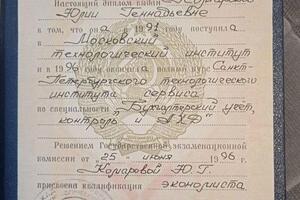 Настоящий диплом выдан Комаровой
Юлии Геннадьевне
в том, что она в 1991 году поступила
в Московский
технологический институт
и в 1996 окончила полный курс Санкт-
Петербургского технологического
института сервиса
по специальности „Бухгалтерский учет,
контроль и АХД“
Решением Государственной экзаменационной
комиссии от „25“ июня 1996 г.
Комаровой Ю. Г.
присвоена квалификация экономиста